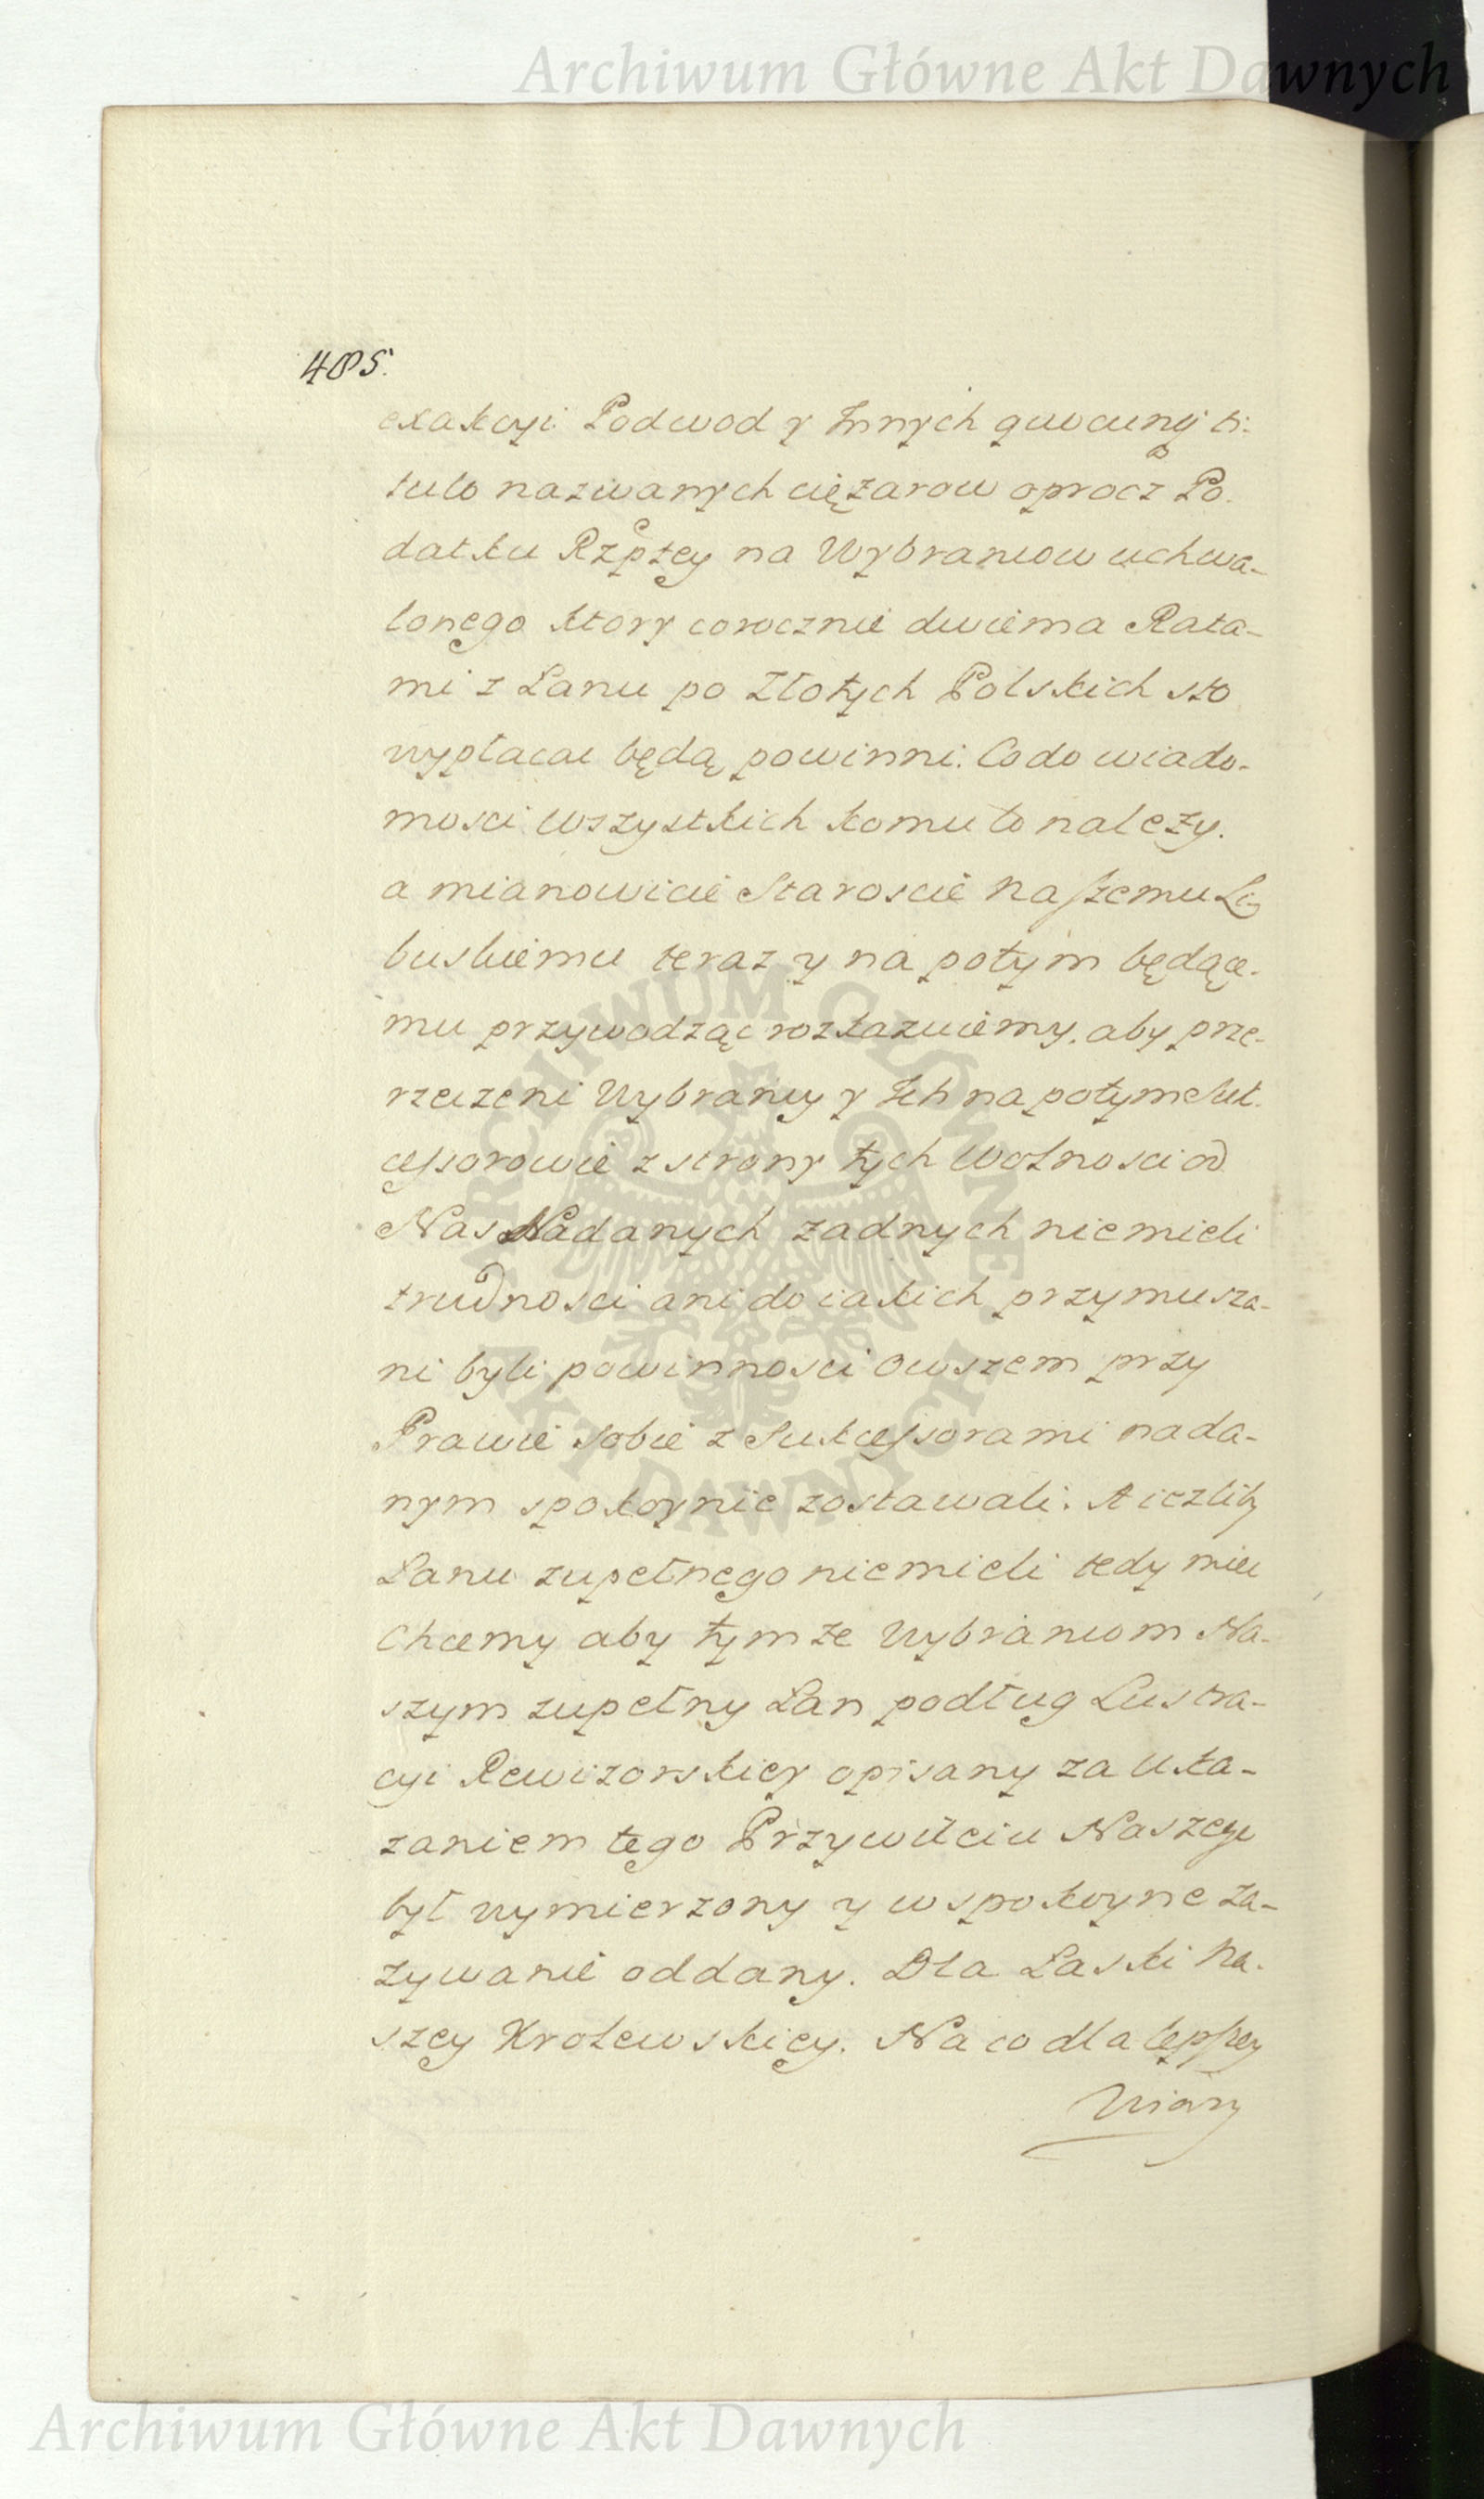 Archiwum Główne Akt Dawnych
485.
exakcyi Podwod y Innych quocunq ti-
tulo nazwanych ciężarow oprocz Po-
datku Rzptey na Wybrancow uchwa-
lonego ktory corocznie dwiema Rata-
mi z Łanu po Złotych Polskich sto
wypłacac będą powinni. Co do wiado-
mosci wszystkich komu to należy.
a mianowicie Staroscie naszemu Li-
buskiemu teraz y na potym będące-
mu przywodząc rozkazuiemy, aby prze-
rzeczeni Wybrancy y Ich na potym Suk-
cessorowie z strony tych Wolnosci od
Nas Nadanych zadnych niemieli
trudnosci ani do iakich przymusza-
ni byli powinnosci owszem przy
Prawie sobie z Sukcessorami nada-
nym spokoynie zostawali. A iezliby
Łanu zupełnego niemieli tedy miec
Chcemy aby tymże Wybrancom Na-
szym zupełny Łan podług Lustra-
cyi Rewizorskiey opisany za uka-
zaniem tego Przywileiu Naszego
był wymierzony y w spokoyne za-
zywanie oddany. Dla Łaski Na-
szey Krolewskiey. Na co dla lepszey
Wiary
ARCHIWUM GŁÓWNE AKT DAWNYCH
Archiwum Główne Akt Dawnych